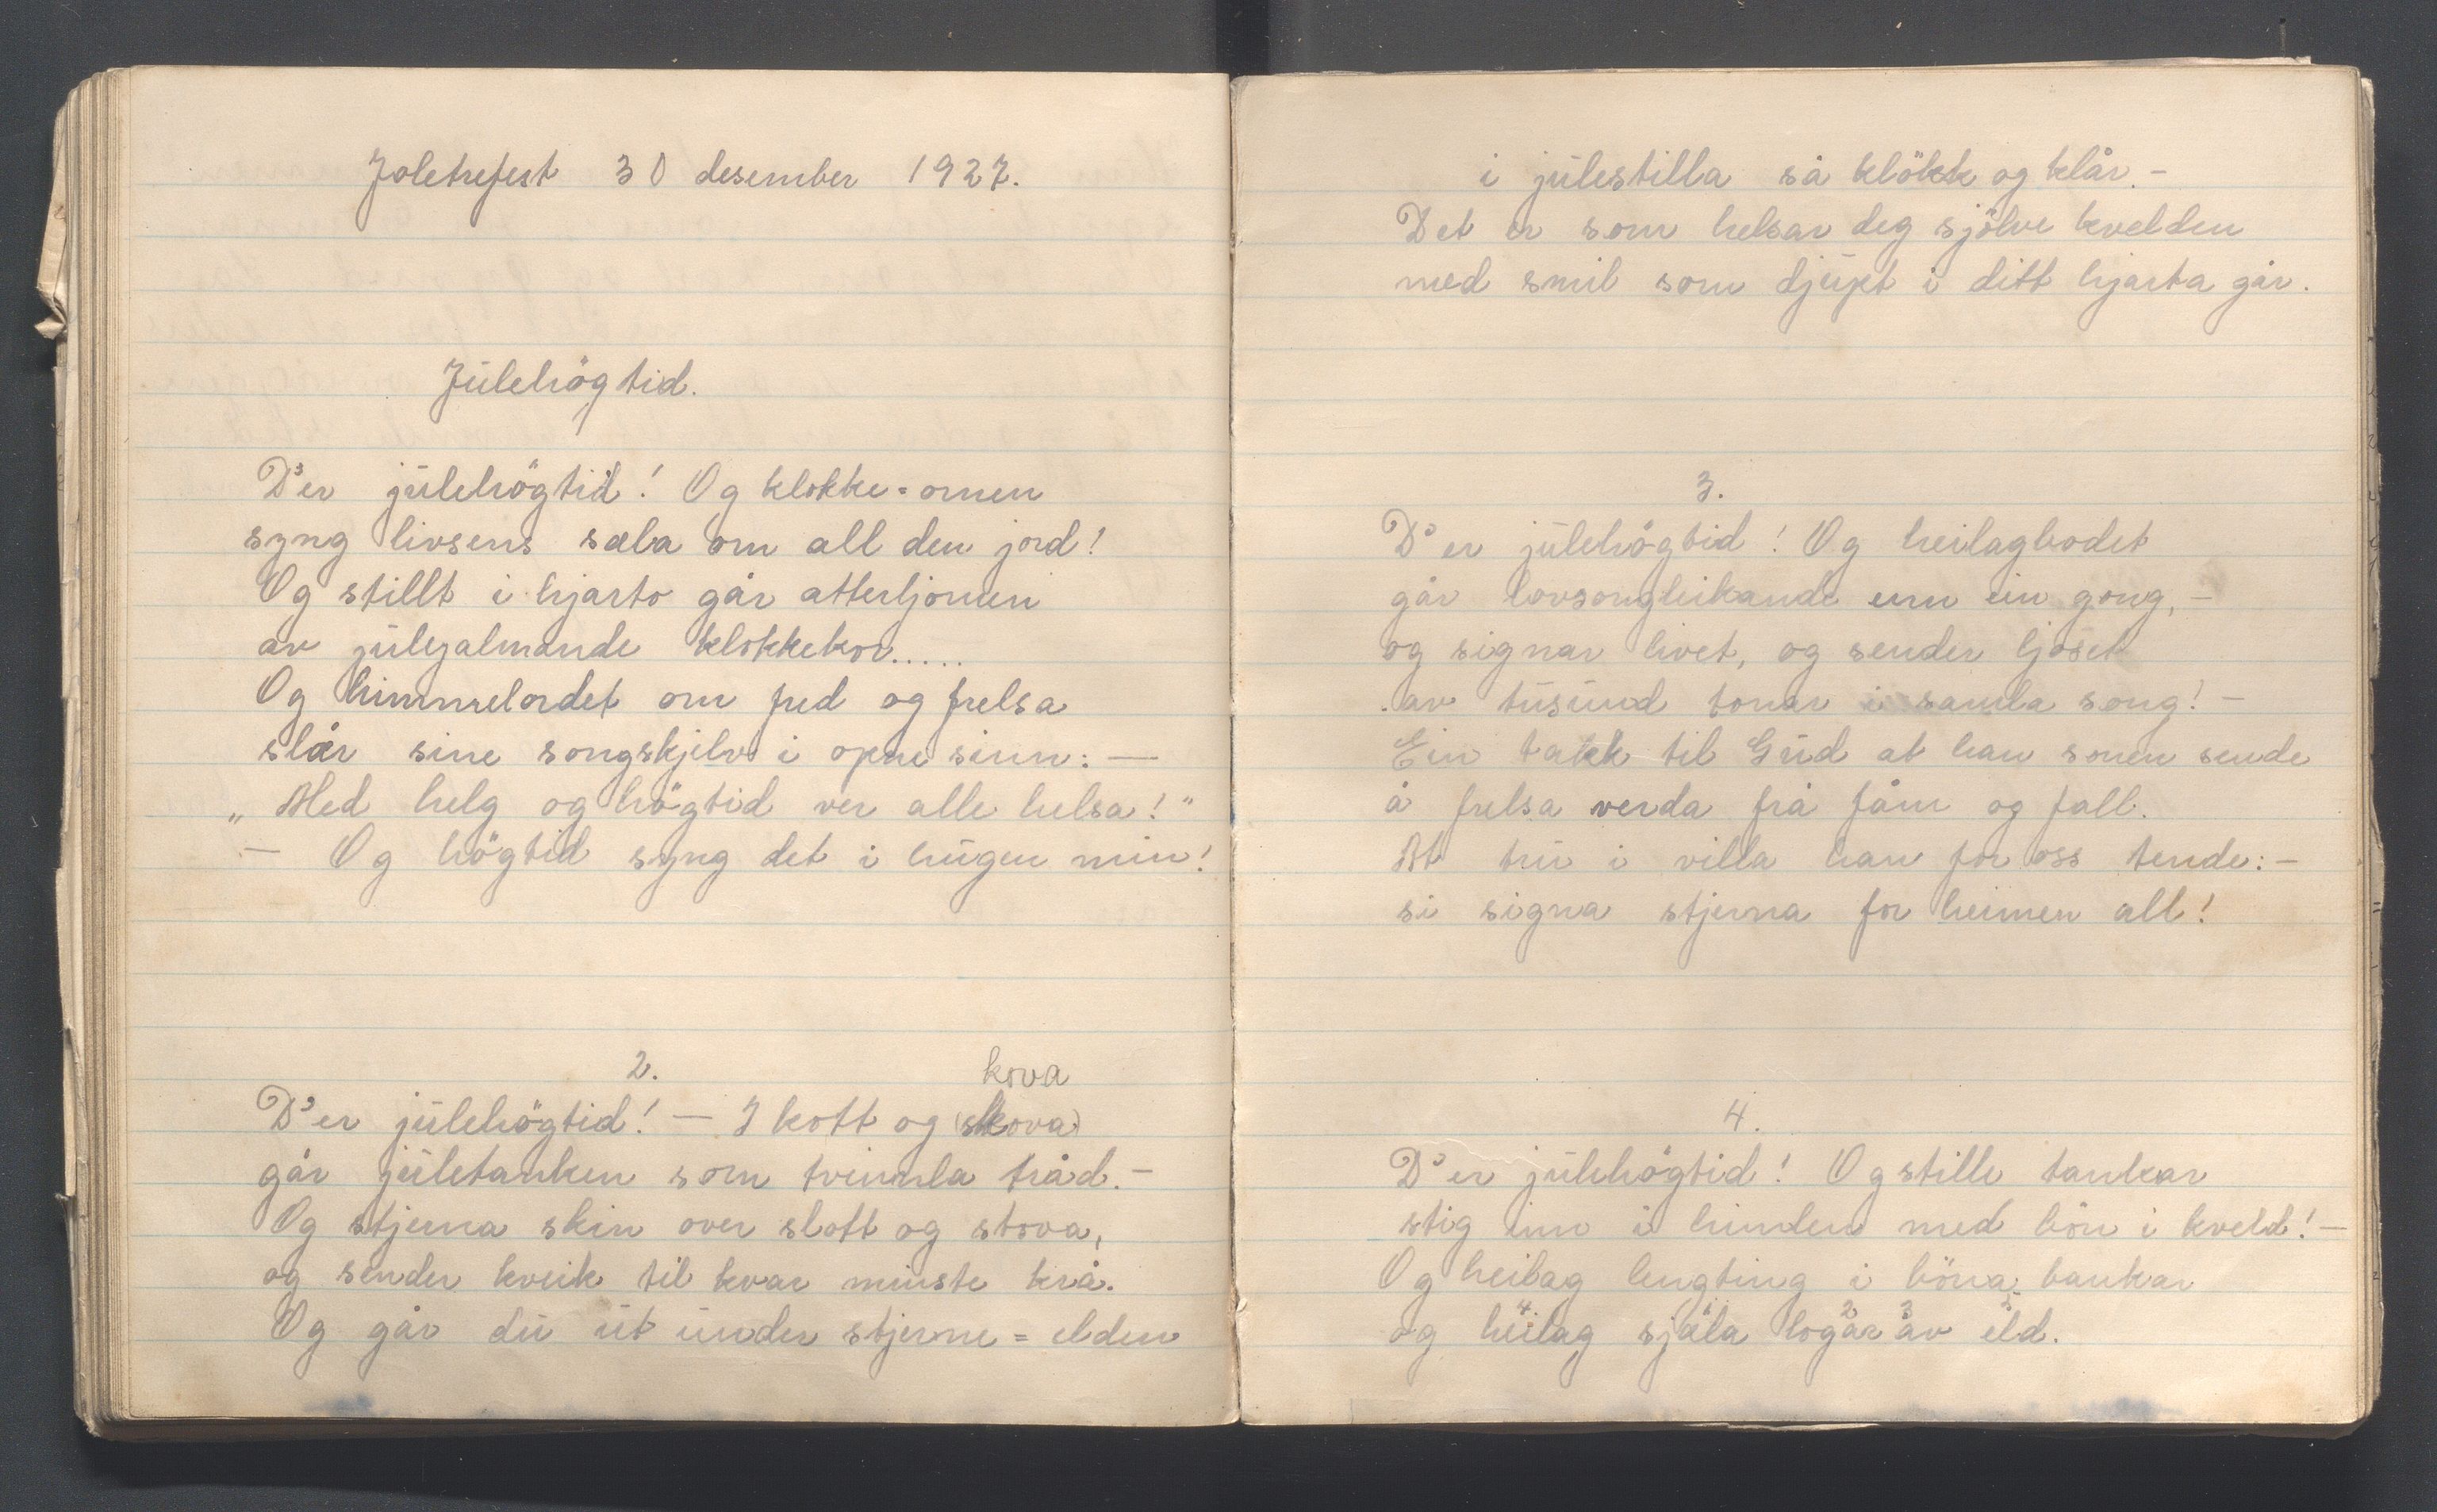 Joletrefest 30 desember 1927.
Julehögtid.
D'er julehögtid! Og klokke=omen
syng livsens sæla om all den jord!
Og stillt i hjarto går atterljomen
av julejalmande klokkekor.....
Og himmelordet om fred og frelsa
slær sine songskjelv i opne sinn: —
„Med helg og högtid ver alle helsa!"
— Og högtid syng det i hugen min!
2.
kova
D'er julehögtid! — I kott og (skova)
går juletanken som tvinnla tråd. —
Og stjerna skin over slott og stova,
og sender kveik til kvar minste krå.
Og går du ut under stjerne = elden
i julestilla så klökk og klår. —
Det er som helsar deg sjölve kvelden
med smil som djupt i ditt hjarta går.
3.
D'er julehögtid! Og heilagbodet
går lovsongleikande enn ein gong, —
og signar livet, og sender ljoset
av tusund tonar i samla song! —
Ein takk til Gud at han sonen sende
å frelsa verda frå fåm og fall.
At tru i villa han for oss tende: —
si signa stjerna for heimen all!
4.
D'er julehögtid! Og stille tankar
stig inn i himlen med bön i kveld! —
Og heilag lengting i böna bankar
og heilag sjæla logar av eld.